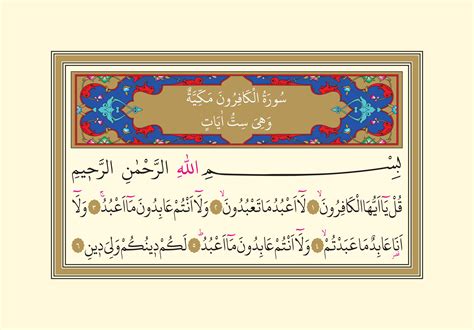 سُورَةُ الْكَافِرُونَ مَكِّيَّةٌ
وَهِيَ سِتُّ اٰيَاتٍ
بِسْمِ اللهِ الرَّحْمٰنِ الرَّحِيمِ
قُلْ يَٓا اَيُّهَا الْكَافِرُونَۙ ﴿١﴾ لَٓا اَعْبُدُ مَا تَعْبُدُونَۙ ﴿٢﴾ وَلَٓا اَنْتُمْ عَابِدُونَ مَٓا اَعْبُدُۚ ﴿٣﴾ وَلَٓا
اَنَا۬ عَابِدٌ مَا عَبَدْتُمْۙ ﴿٤﴾ وَلَٓا اَنْتُمْ عَابِدُونَ مَٓا اَعْبُدُۜ ﴿٥﴾ لَكُمْ دِينُكُمْ وَلِيَ دِينِ ﴿٦﴾